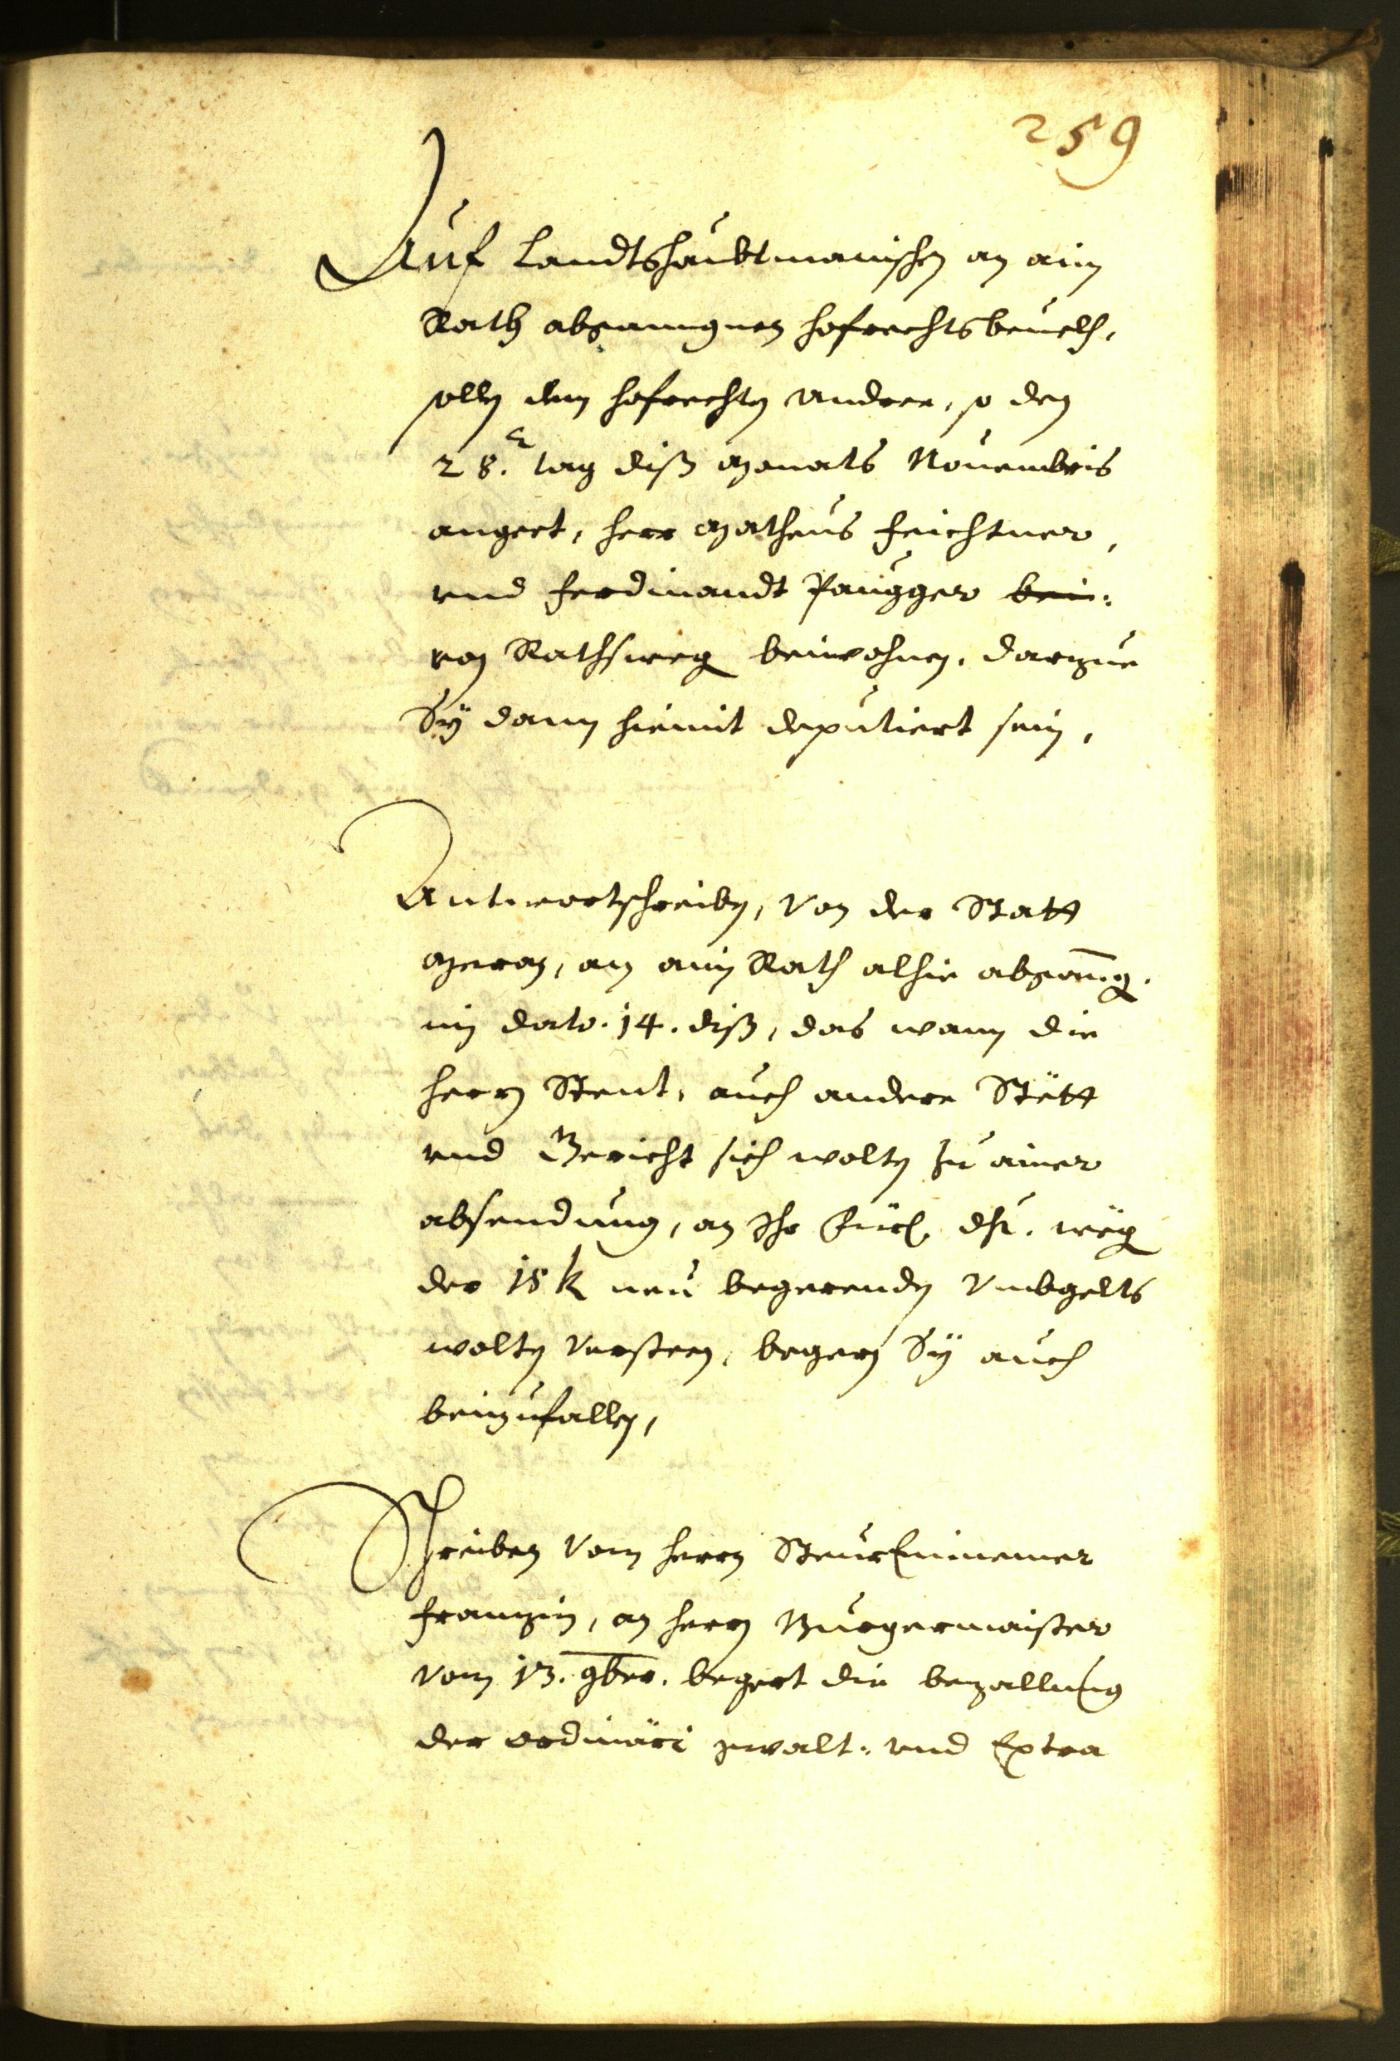 259
Auf Landtshaubtmanischen an ain
Rath abganngnen hofrechtsbeuelh,
sollen dem hofrechten andrer, so den
28. tag diß Monats Nouembris
angeet, herr Matheus Feichtner,
vnd Ferdinandt Paugger bei:
von Rathsweg beiwohnen, darzue
Sÿ dann hiemit deputiert sein,
Antwortschreiben, Von der Statt
Meran, an ain Rath alhie abganng.
im dato. 14. diß, das wann die
herrn Stent, auch andere Stëtt
vnd Gericht sich wolten zu ainer
absendung, an Ihr Fürl. Dht. weg
der 18 k neu begerenden Vmbgelts
wolten versteen, begern Sÿ auch
beizufallen,
Schreiben vom herrn SteurEinnemer
Franzin, an herrn Burgermaister
vom 13. 9ber. begert die bezallung
der ordinäri zwalt: vnd Extra